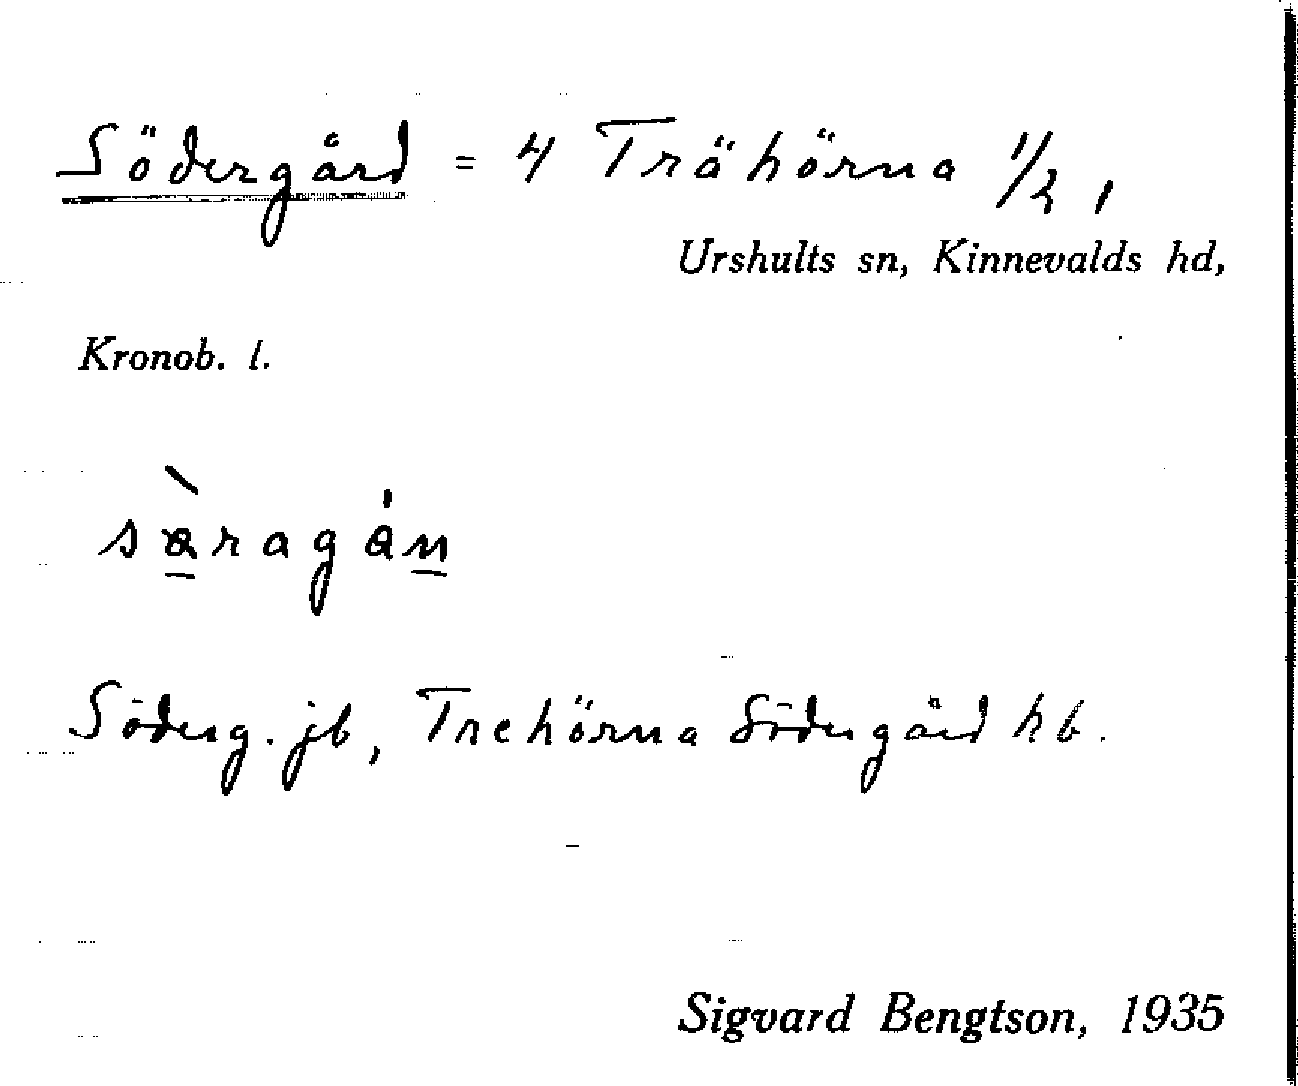 Södergård = 4 Trähörna 1/2,
Urshults sn, Kinnevalds hd,
Kronob. l.
Söderg. jb, Trehörna Södergård hb.
Sigvard Bengtson, 1935